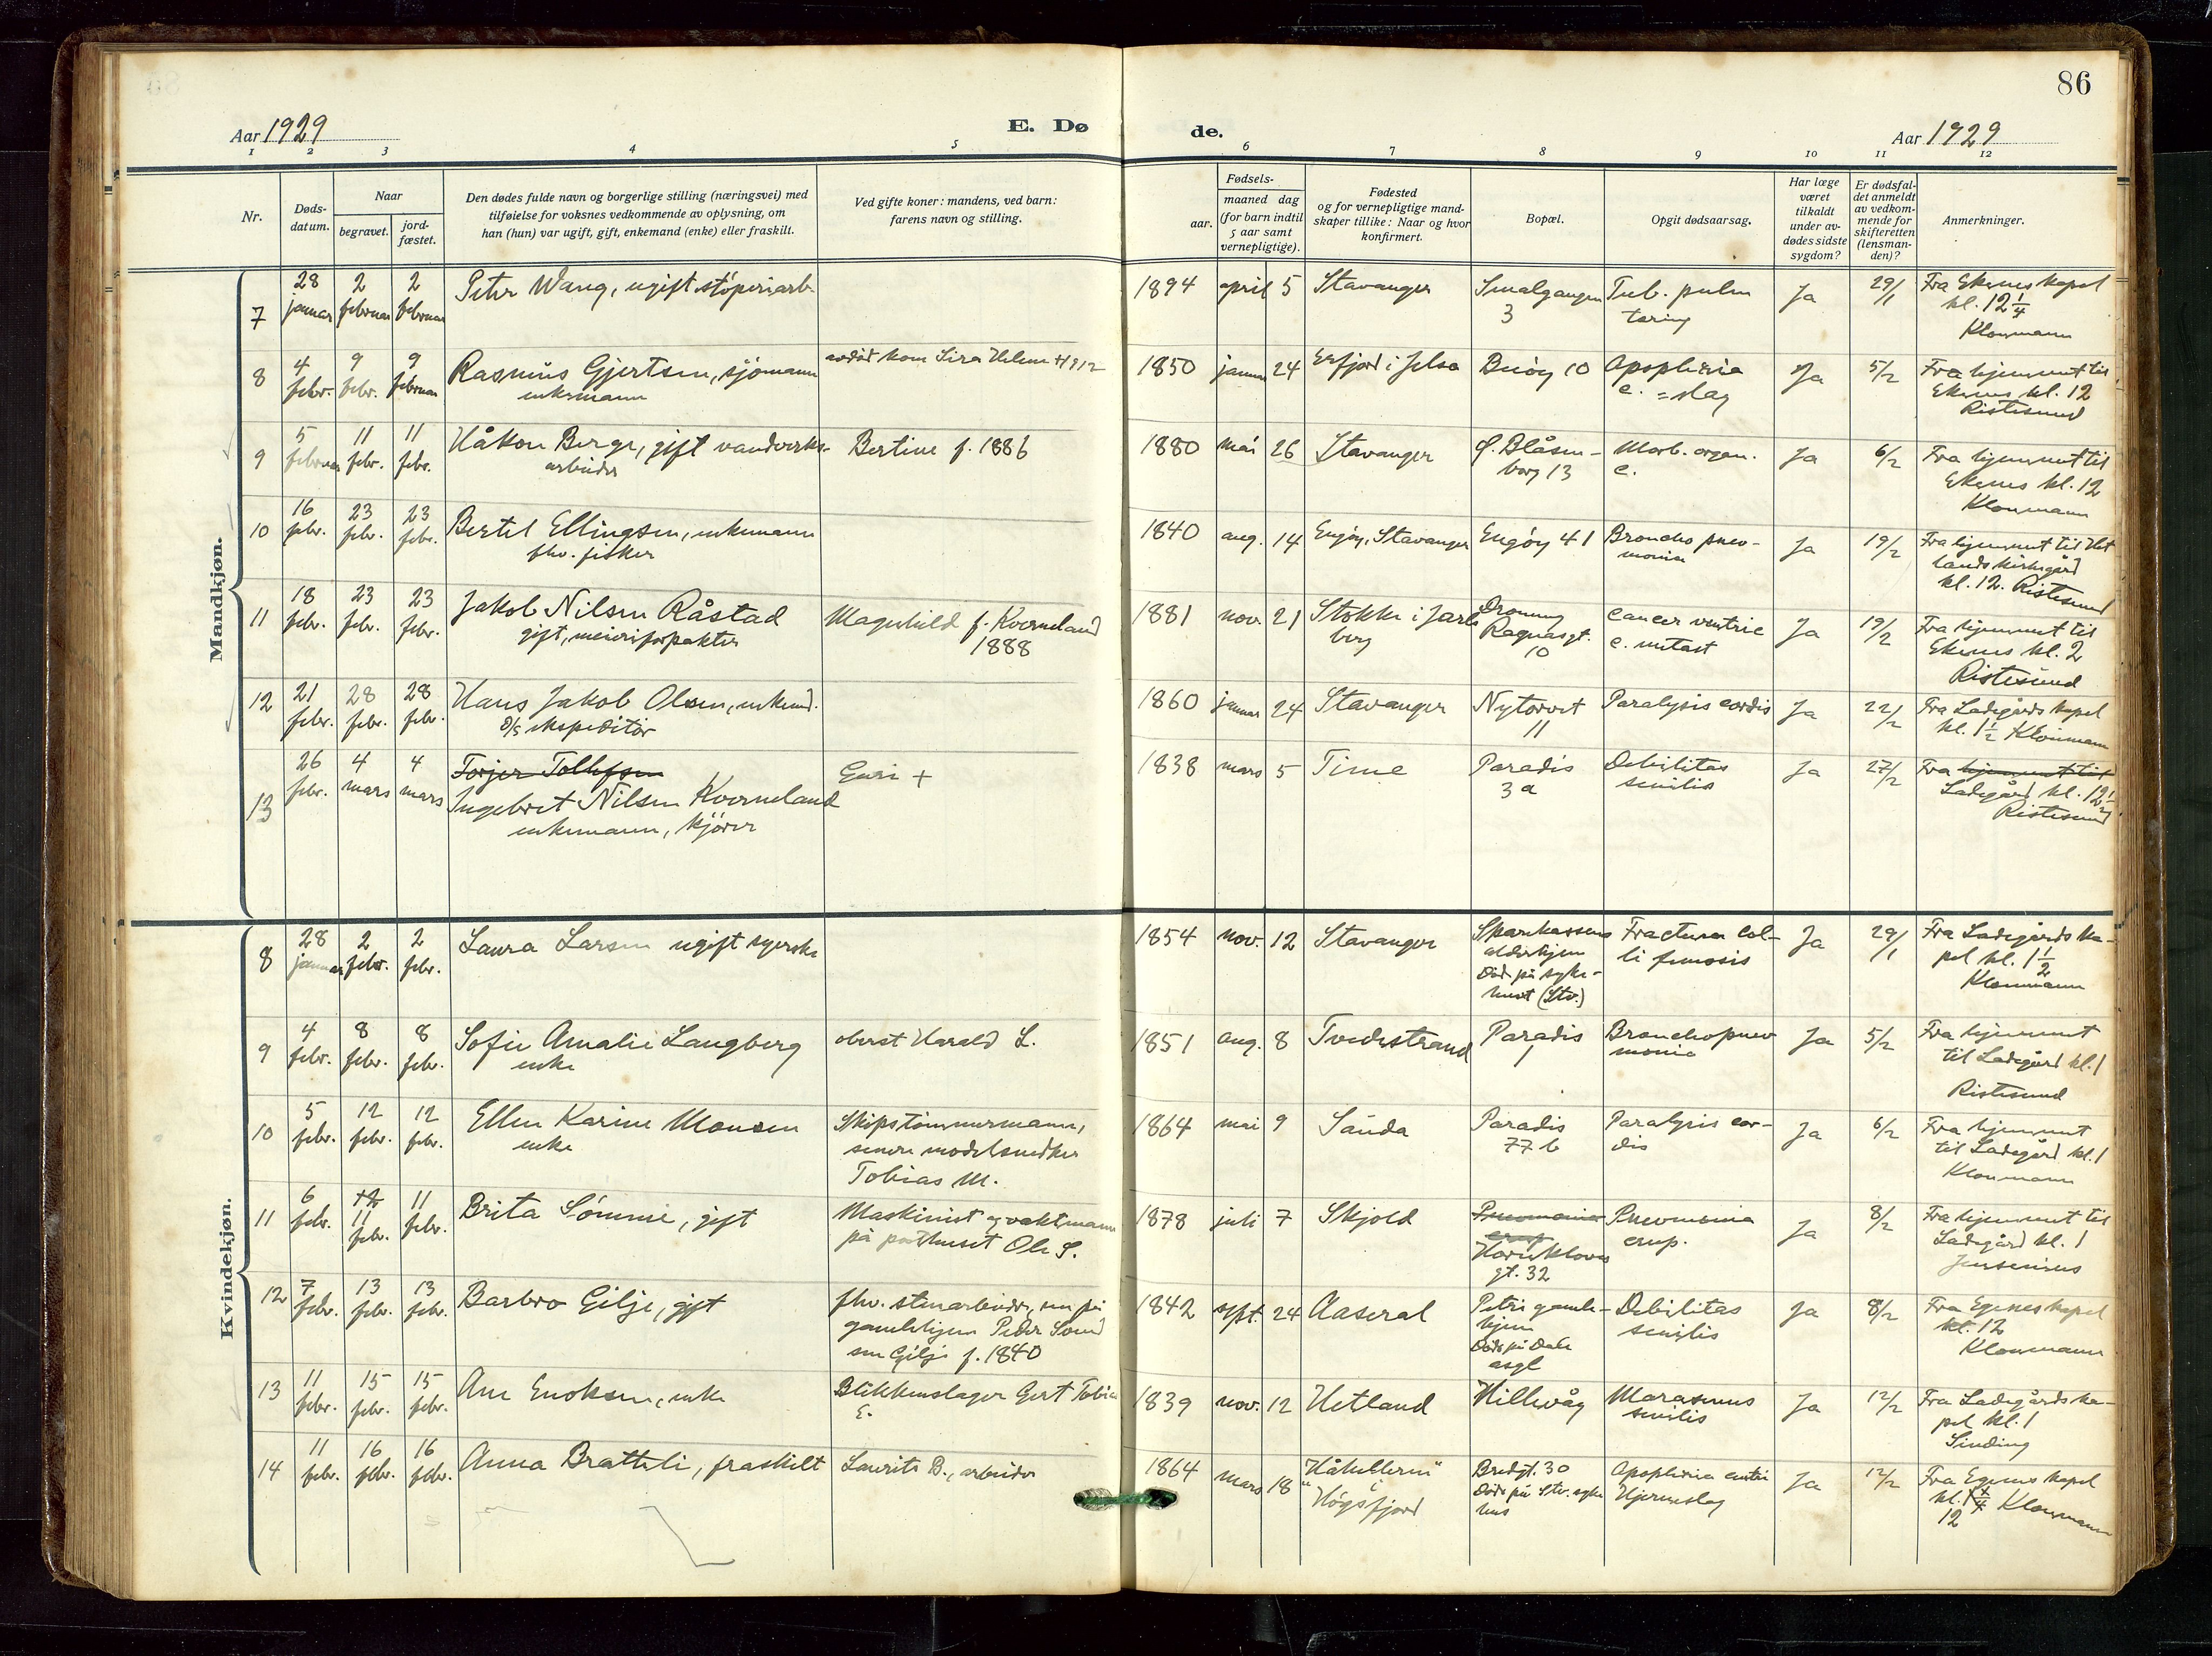 86
Aar 1929
E. Dø
de.
Aar 1929
1 2 3 4 5
6 7 8 9 10 11 12
Nr.
Døds-
datum.
Naar
begravet.
jord-
fæstet.
Den dødes fulde navn og borgerlige stilling (næringsvei) med
tilføielse for voksnes vedkommende av oplysning, om
han (hun) var ugift, gift, enkemand (enke) eller fraskilt.
Ved gifte koner: mandens, ved barn:
farens navn og stilling.
Fødsels-
aar.
maaned dag
(for barn indtil
5 aar samt
vernepligtige).
Fødested
og for vernepligtige mand-
skaper tillike: Naar og hvor
konfirmert.
Bopæl.
Opgit dødsaarsag.
Har læge
været
tilkaldt
under av-
dødes sidste
sygdom?
Er dødsfal-
det anmeldt
av vedkom-
mende for
skifteretten
(lensman-
den)?
Anmerkninger.
Mandkjøn.
7
28 januar
2 februar
2 februar
Peter Wang, ugift støperiarb.
1894 april 5
Stavanger
Smalgangen
3
Tub. pulm
tæring
Ja
29/1
Fra Ekenes kapel
kl. 12 1/4
Klonmann
8
4 febr.
9 febr.
9 februar
Rasmus Gjertsen, sjømann
enkemann
1850 januar 24
Erfjord i Jelsa
Buøy 10
Apoplexia
c. = slag
Ja
5/2
Fra hjemmet til
Ekenes kl. 12
Ristesund
9
5 februar
11 febr.
11 febr.
Håkon Berge, gift vandverks-
arbeider
Bertine f. 1886
1880 mai 26
Stavanger
Ø. Blåsen-
borg 13
Morb. organ.
c.
Ja
6/2
Fra hjemmet til
Ekenes kl. 12
Klonmann
10
16 febr.
23 febr.
23 febr.
Bertel Ellingsen, enkemann
fhv. fisker
1840 aug. 14
Engøy, Stavanger
Engøy 41
Broncho pnev-
monia
Ja
19/2
Fra hjemmet til Het
lands kirkegård
kl. 12. Ristesund
11
18 febr.
23 febr.
23 febr.
Jakob Nilsen Råstad
gift, meieriforpakter
Magnhild f. Kverneland
1888
1881 nov. 21
Stokke i Jarls
berg
Dronning
Ragnasgt.
10
Cancer ventric
c. metast
Ja
19/2
Fra hjemmet til
Ekenes kl. 2
Ristesund
12
21 febr.
28 febr.
28 febr.
Hans Jakob Olsen, enkemd.
D/S ekspeditør
1860 januar 24
Stavanger
Nytorvet
11
Paralysis cordis
Ja
22/2
Fra Ladegårds kapel
kl. 1 1/2 Klonmann
13
26 febr.
4 mars
4 mars
Torjer Tollefsen
Ingebret Nilsen Kverneland
enkemann, kjører
Guri +
1838 mars 5
Time
Paradis
3 a
Debilitas
senilis
Ja
27/2
Fra hjemmet til
Ladegård kl. 12 1/2
Ristesund
Kvindekjøn.
8
28 januar
2 febr.
2 febr.
Laura Larsen ugift syerske
1854 nov. 12
Stavanger
Sparekassens
alderhjem
Død på syke-
huset (Stv.)
Fractura col-
li femoris
Ja
29/1
Fra Ladegårds ka-
pel kl. 1 1/2
Klonmann
9
4 febr.
8 febr.
8 febr.
Sofie Amalie Langberg
enke
oberst Harald L.
1851 aug. 8
Tvedestrand
Paradis
1
Bronchopnev
monia
Ja
5/2
Fra hjemmet
til Ladegård kl. 1
Ristesund
10
5 febr.
12 febr.
12 febr.
Ellen Karine Monsen
enke
Skipstømmermann,
senere modelsnedker
Tobias M.
1864 mai 9
Sauda
Paradis
77 b
Paralysis cor-
dis
Ja
6/2
Fra hjemmet
til Ladegård kl. 1
Klonmann
11
6 febr.
12
11 febr.
11 febr.
Brita Sømme, gift
Maskinist og vaktmann
på posthuset Ole S.
1878 juli 7
Skjold
Pneumonia
crup
Haraklovs
gt. 32
Pneumonia
crup.
Ja
8/2
Fra hjemmet til
Ladegård kl. 1
Jensenius
12
7 febr.
13 febr.
13 febr.
Barbro Gilje, gift
fhv. stenarbeider, nu på
gamlehjem Peder Svend
sen Gilje f. 1840
1842 sept. 24
Aaseral
Petri gamle-
hjem
Død på Dale
asyl
Debilitas
senilis
Ja
8/2
Fra Egenes kapel
kl. 12
Klonmann
13
11 febr.
15 febr.
15 febr.
Ane Enoksen, enke
Blikkenslager Gert Tobias
E.
1839 nov. 12
Hetland
Hillevåg
Marasmus
senilis
Ja
12/2
Fra Ladegårds ka-
pel kl. 1
Sinding
14
11 febr.
16 febr.
16 febr.
Anna Bratteli, fraskilt
Laurits B., arbeider
1864 mars 18
"Håhelleren"
i
Høgsfjord
Bredgt. 30
Død på Stv. syke
hus
Apoplexia
Hjerneslag
Ja
12/2
Fra Egenes kapel
kl. 1 1/4 Klonmann
12